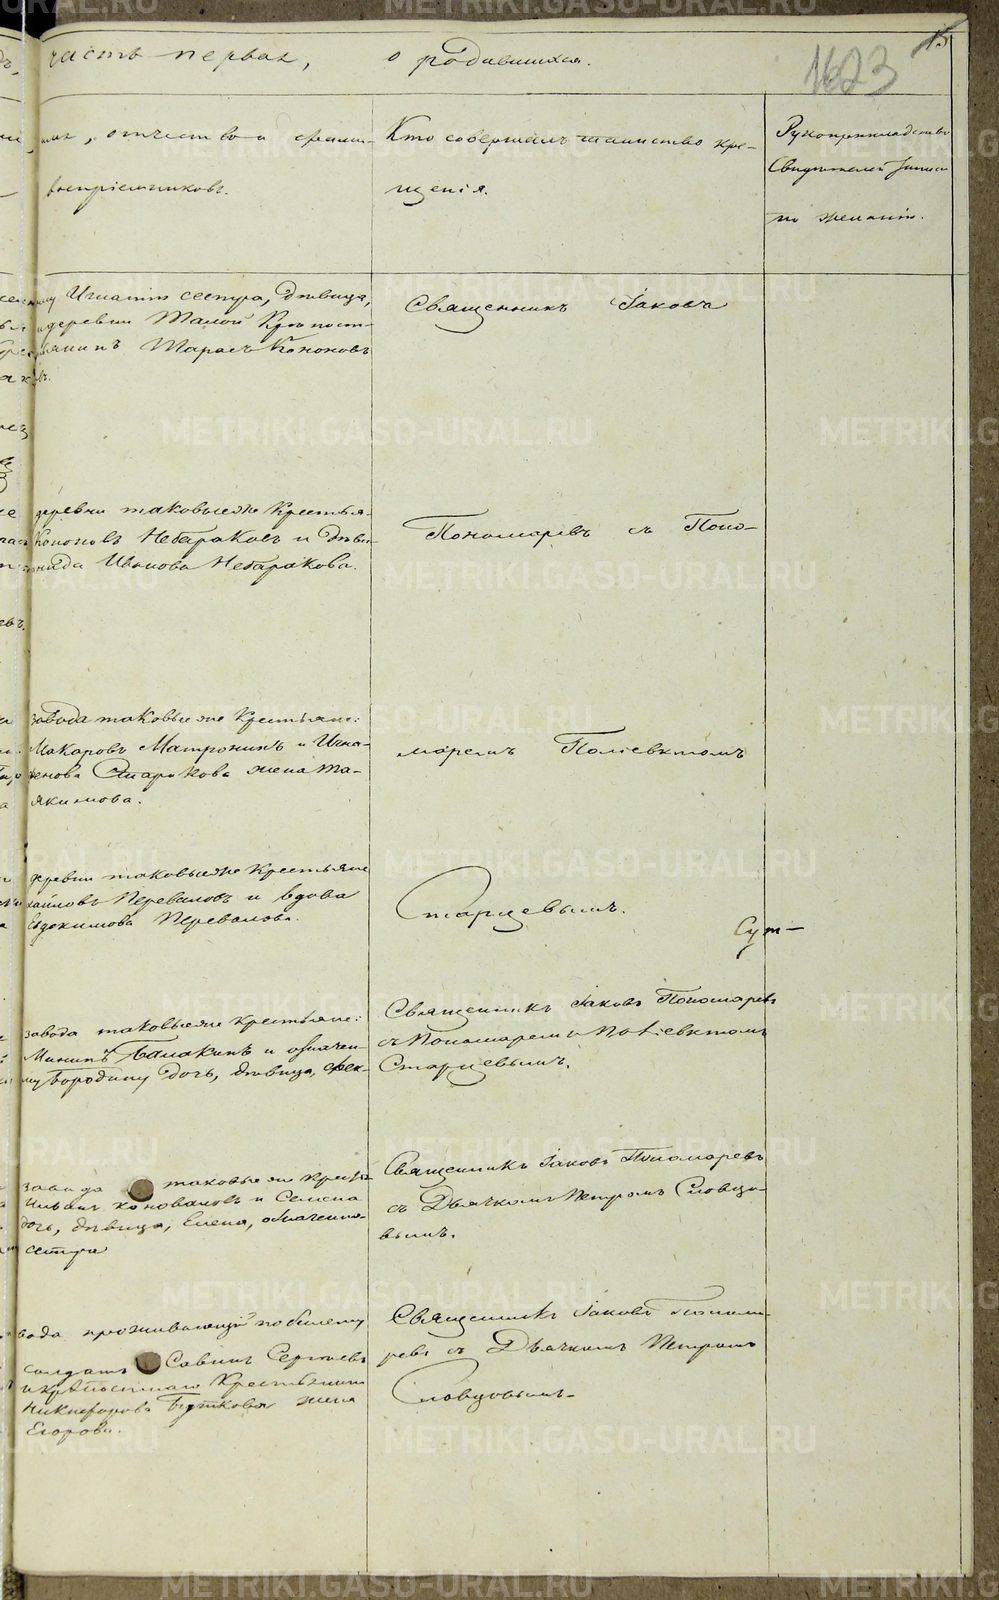 часть первая, о родившихся.
15
1623
имя, отчество и фамил-
воспріемниковъ.
Кто совершалъ таинство кре-
щенія.
Рукоприкладство
Свидѣтелей записи
по желанію.
Игнатію сестра, дѣвица,
деревни Талой Крѣпост-
Тарасъ Кононовъ
Священникъ Іаковъ
деревни таковые же Крестья-
Кононовъ Небараковъ и дѣви-
Иванова Небаракова.
Пономаревъ съ Поно-
завода таковые же Крестьяне:
Макаровъ Матронинъ и Игна-
Старикова жена Та-
якимова.
маремъ Поліевктомъ
деревни таковые же Крестьяне
Переваловъ и вдова
Евдокимова Перевалова.
Старцевымъ.
Сут-
завода таковые же Крестьяне:
Мининъ Балакинъ и означен-
Бородину дочь, дѣвица, фек-
Священникъ Іаковъ Пономаревъ
съ Пономаремъ Поліевктомъ
Старцевымъ.
завода таковые же Кресть
Коноваловъ и Семена
дочь, дѣвица, Елена, означенна-
сестра
Священникъ Іаковъ Пономаревъ
съ Дьячкомъ Петромъ Словцо-
вымъ.
вода проживающій по билету
солдатъ Савинъ Сергѣевъ
и крѣпостнаго Крестьянина
Никифорова Буткова жена
Егорова.
Священникъ Іаковъ Понома-
ревъ съ Дьячкомъ Петромъ
Словцовымъ.
METRIKI.GASO-URAL.RU